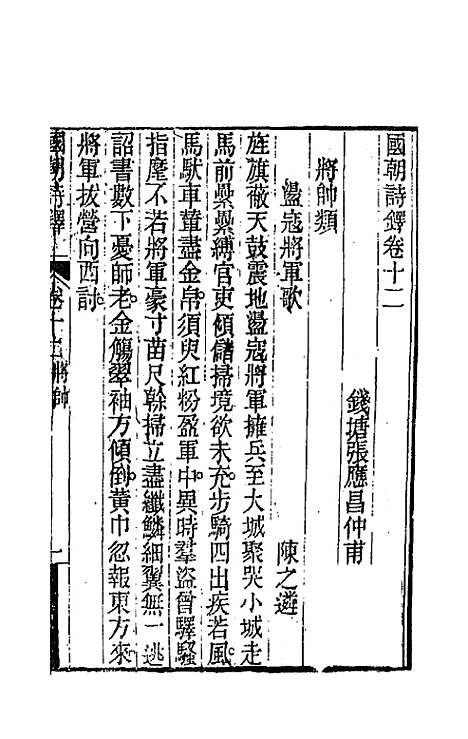 國朝詩鐸卷十二
錢塘張應昌仲甫
將帥類
盪寇將軍歌 陳之遴
旌旗蔽天鼓震地盪寇將軍擁兵至大城聚哭小城走
馬前纍纍縛官吏傾儲掃境欲未充步騎四出疾若風
馬馱車輂盡金帛須臾紅粉盈軍中異時羣盜曾驛騷
指麾不若將軍豪寸苗尺榦掃立盡纖鱗細翼無一逃
詔書數下憂師老金觴翠袖方傾倒黃巾忽報東方來
將軍拔營向西討
國朝詩鐸 卷十二 將帥 一